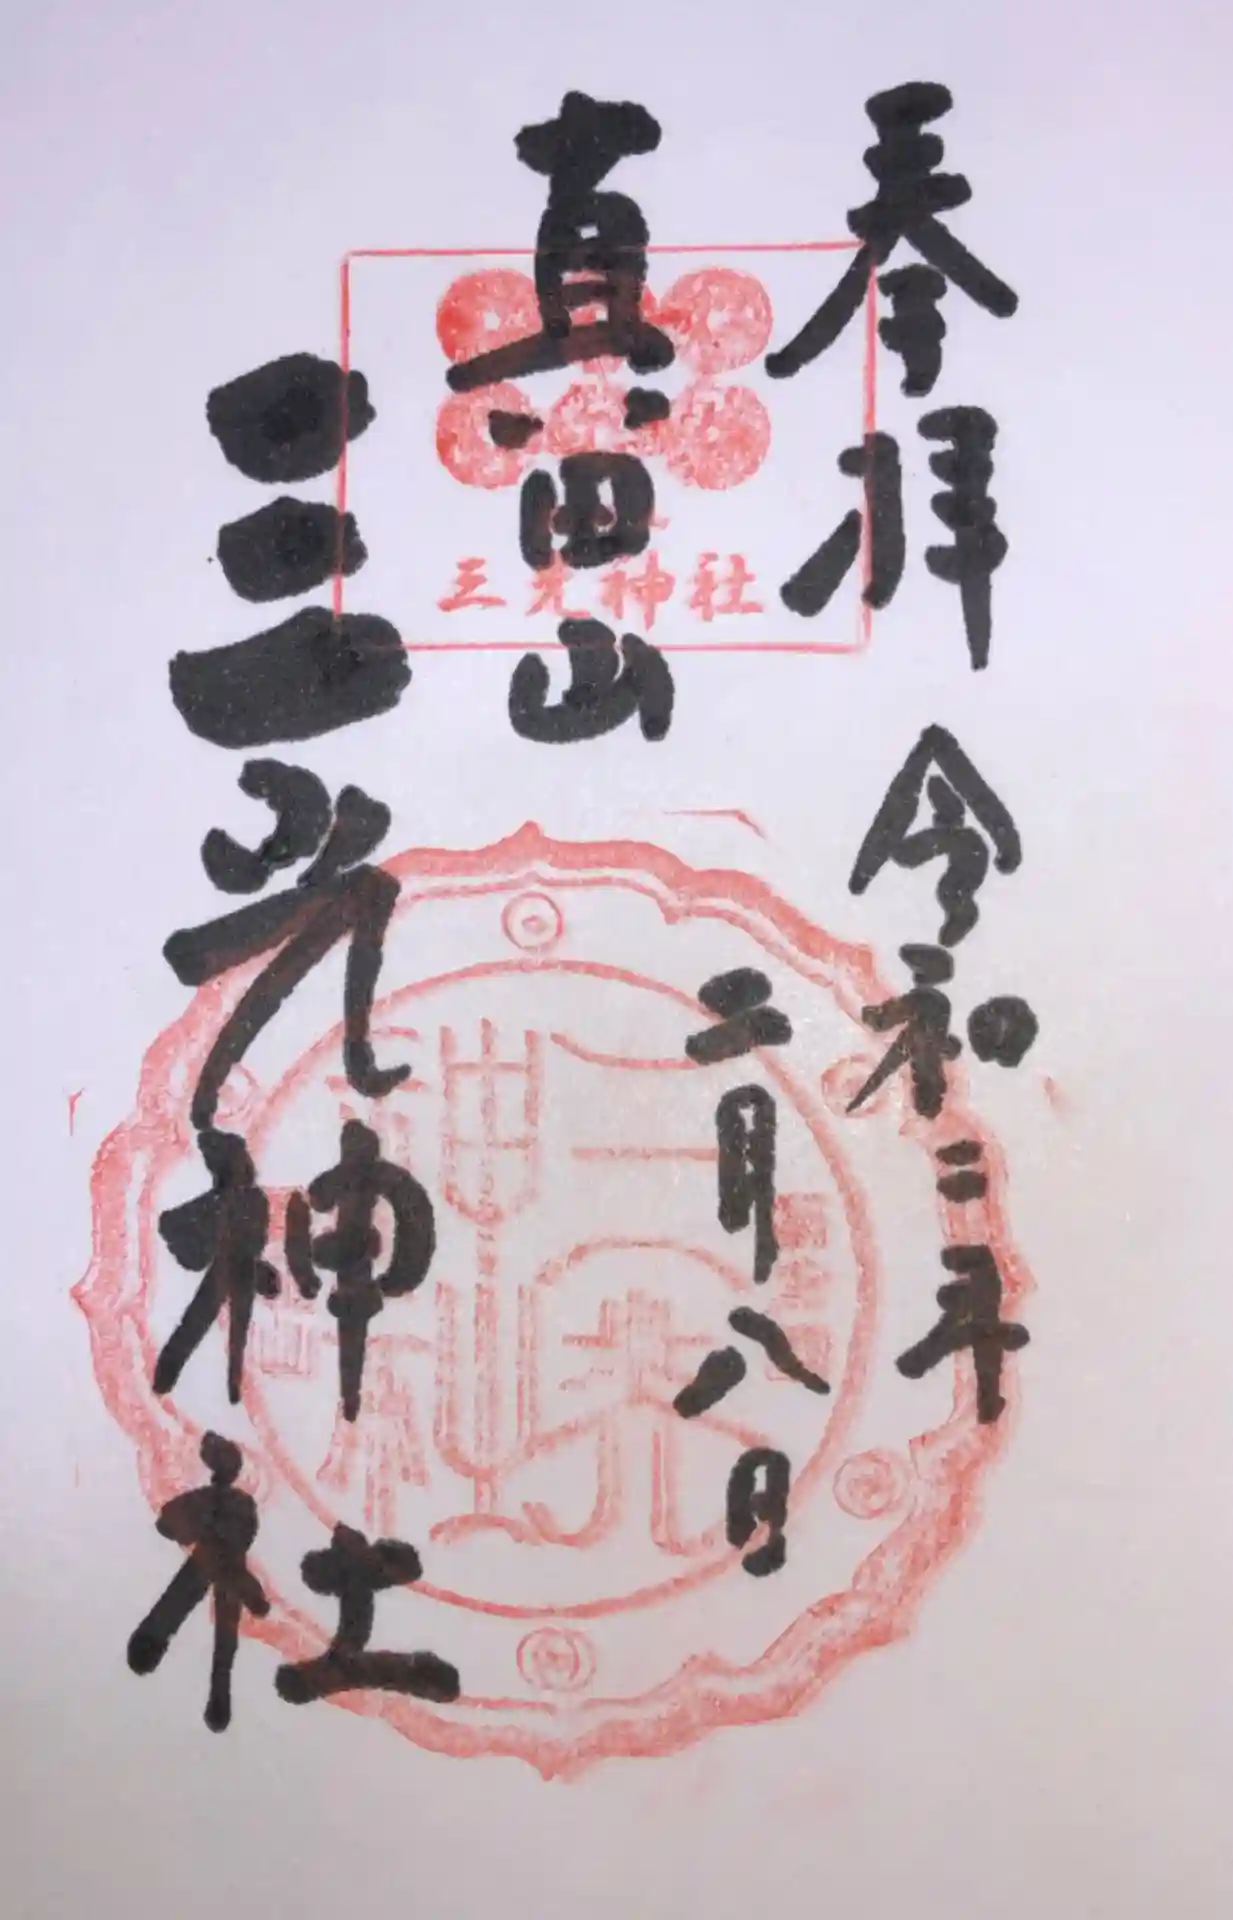 奉拝 令和二年
二月八日
真田山
三光神社
三光神社